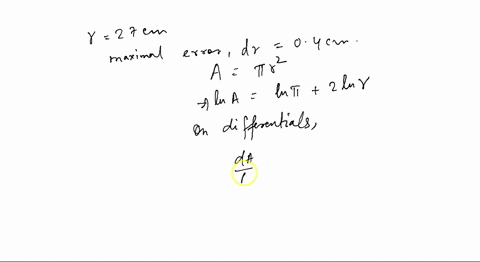 r = 27 cm
maximal error, dr = 0.4 cm.
A = πr²
→ ln A = ln π + 2 ln r
On differentials,
dA